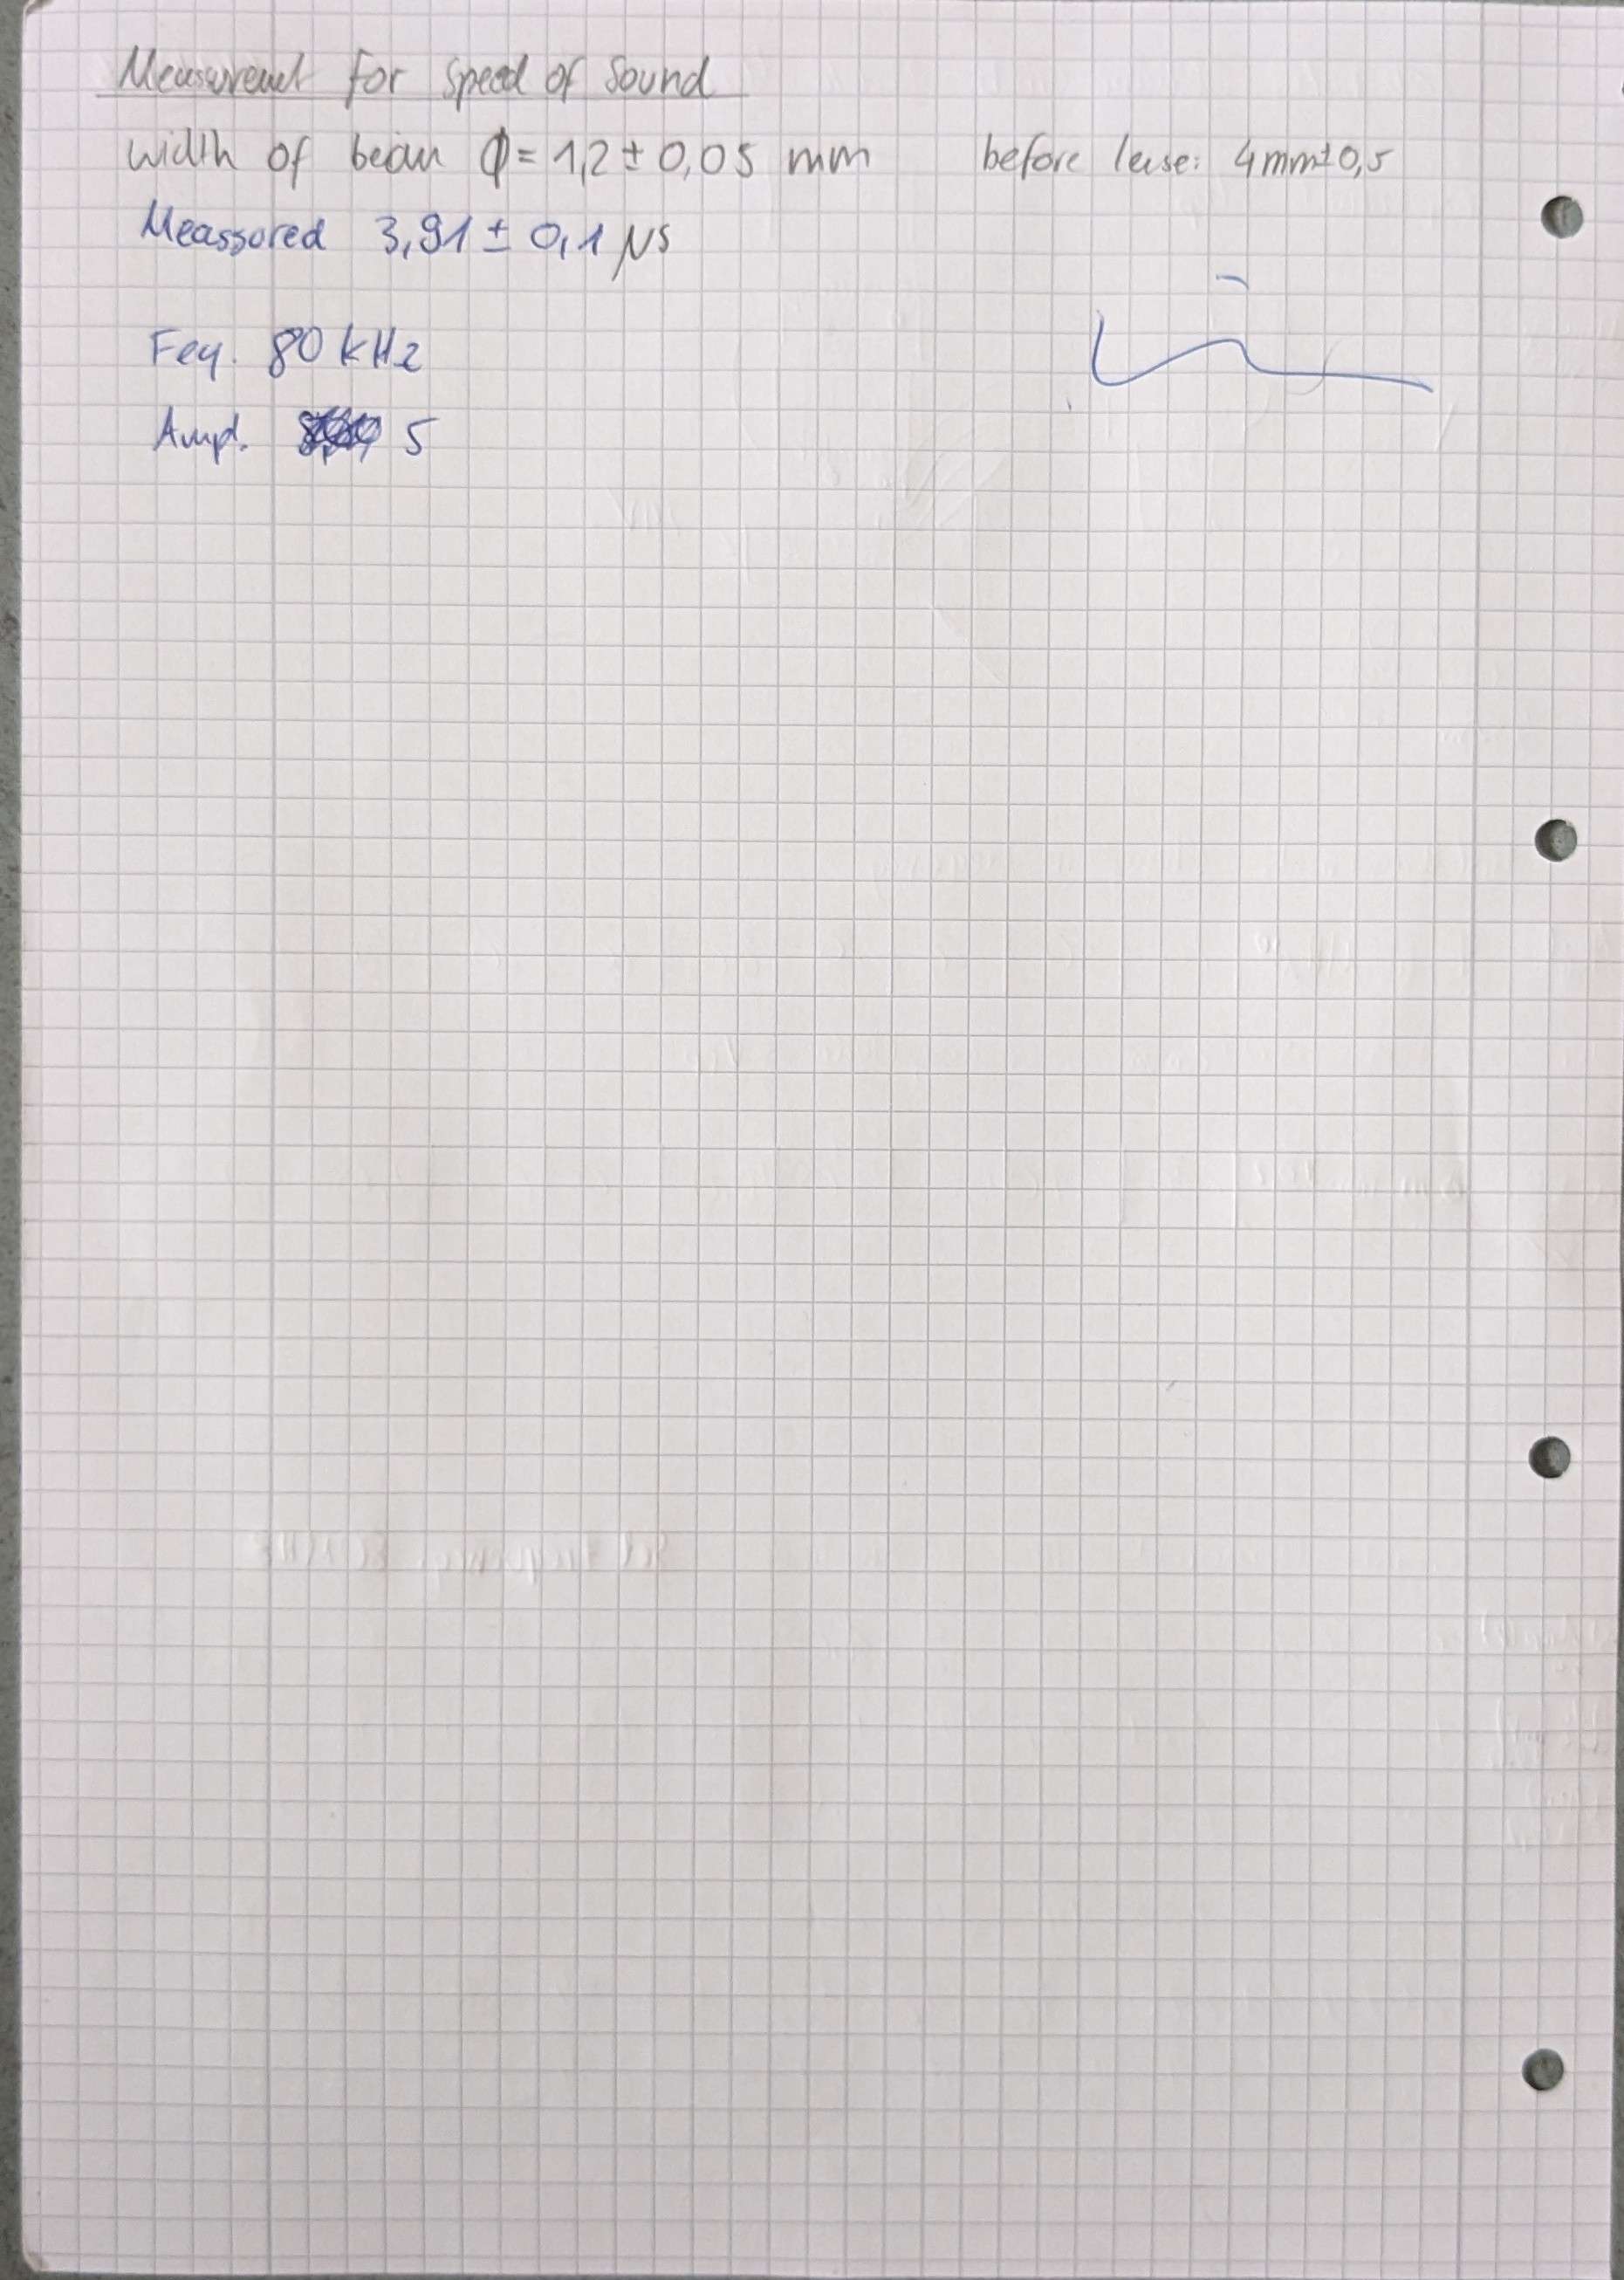 Measurement for Speed of Sound
width of beam ϕ = 1,2 ± 0,05 mm before lense: 4mm±0,5
Meassored 3,91 ± 0,1 µs
Feq. 80 kHz
Ampl. 5